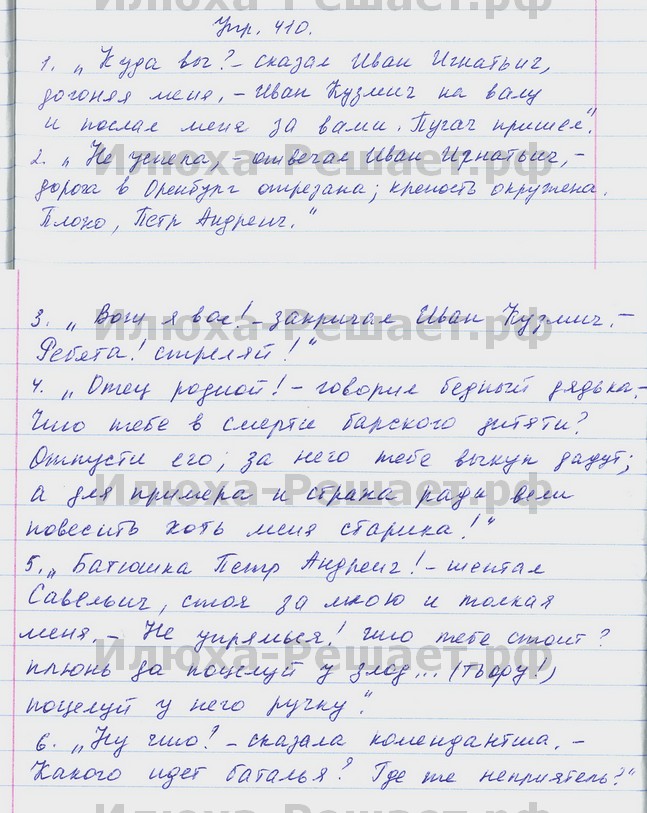 Упр. 410.
1. „Куда вы? – сказал Иван Игнатьич,
догоняя меня. – Иван Кузмич на валу
и послал меня за вами. Пугач пришел“.
2. „Не успела, – отвечал Иван Игнатьич, –
дорога в Оренбург отрезана; крепость окружена.
Плохо, Петр Андреич.“
3. „Вот я вас! – закричал Иван Кузмич. –
Ребята! стреляй!“
4. „Отец родной! – говорил бедный дядька. –
Что тебе в смерти барского дитяти?
Отпусти его; за него тебе выкуп дадут;
а для примера и страха ради вели
повесить хоть меня старика!“
5. „Батюшка Петр Андреич! – шептал
Савельич, стоя за мною и толкая
меня. – Не упрямься! что тебе стоит?
плюнь да поцелуй у злод... (тьфу!)
поцелуй у него ручку“.
6. „Ну что? – сказала комендантша. –
Каково идет баталья? Где же неприятель?“
Илюха-Решает.рф
Илюха-Решает.рф
Илюха-Решает.рф
Илюха-Решает.рф
Илюха-Решает.рф
Илюха-Решает.рф